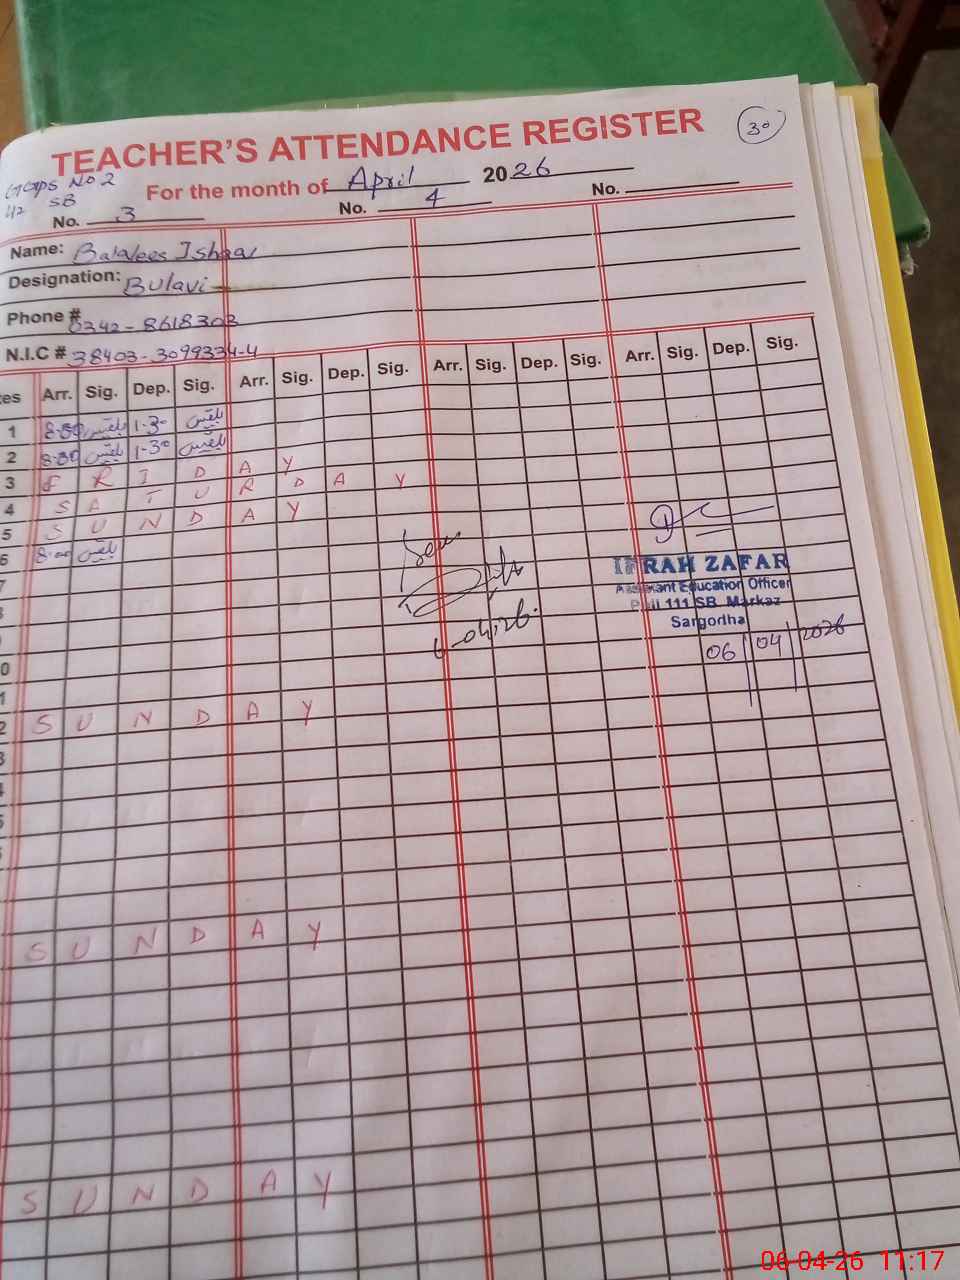 30
TEACHER'S ATTENDANCE REGISTER
GGPS No 2
42 SB
For the month of April 2026
No. 3 No. 4 No.
Name: Balqees Ishaq
Designation: Bulavi
Phone # 0342-8618303
N.I.C # 38403-3099334-4
Arr. Sig. Dep. Sig. Arr. Sig. Dep. Sig. Arr. Sig. Dep. Sig. Arr. Sig. Dep. Sig.
1 8.00 بلقیس 1-30 بلقیس
2 8.00 بلقیس 1-30 بلقیس
3 FRIDAY
4 SATURDAY
5 SUNDAY
6 8.00 بلقیس
7
IFRAH ZAFAR
Assistant Education Officer
Pull 111 SB Markaz
Sargodha
06 04 2026
SUNDAY
SUNDAY
SUNDAY
06-04-26 11:17